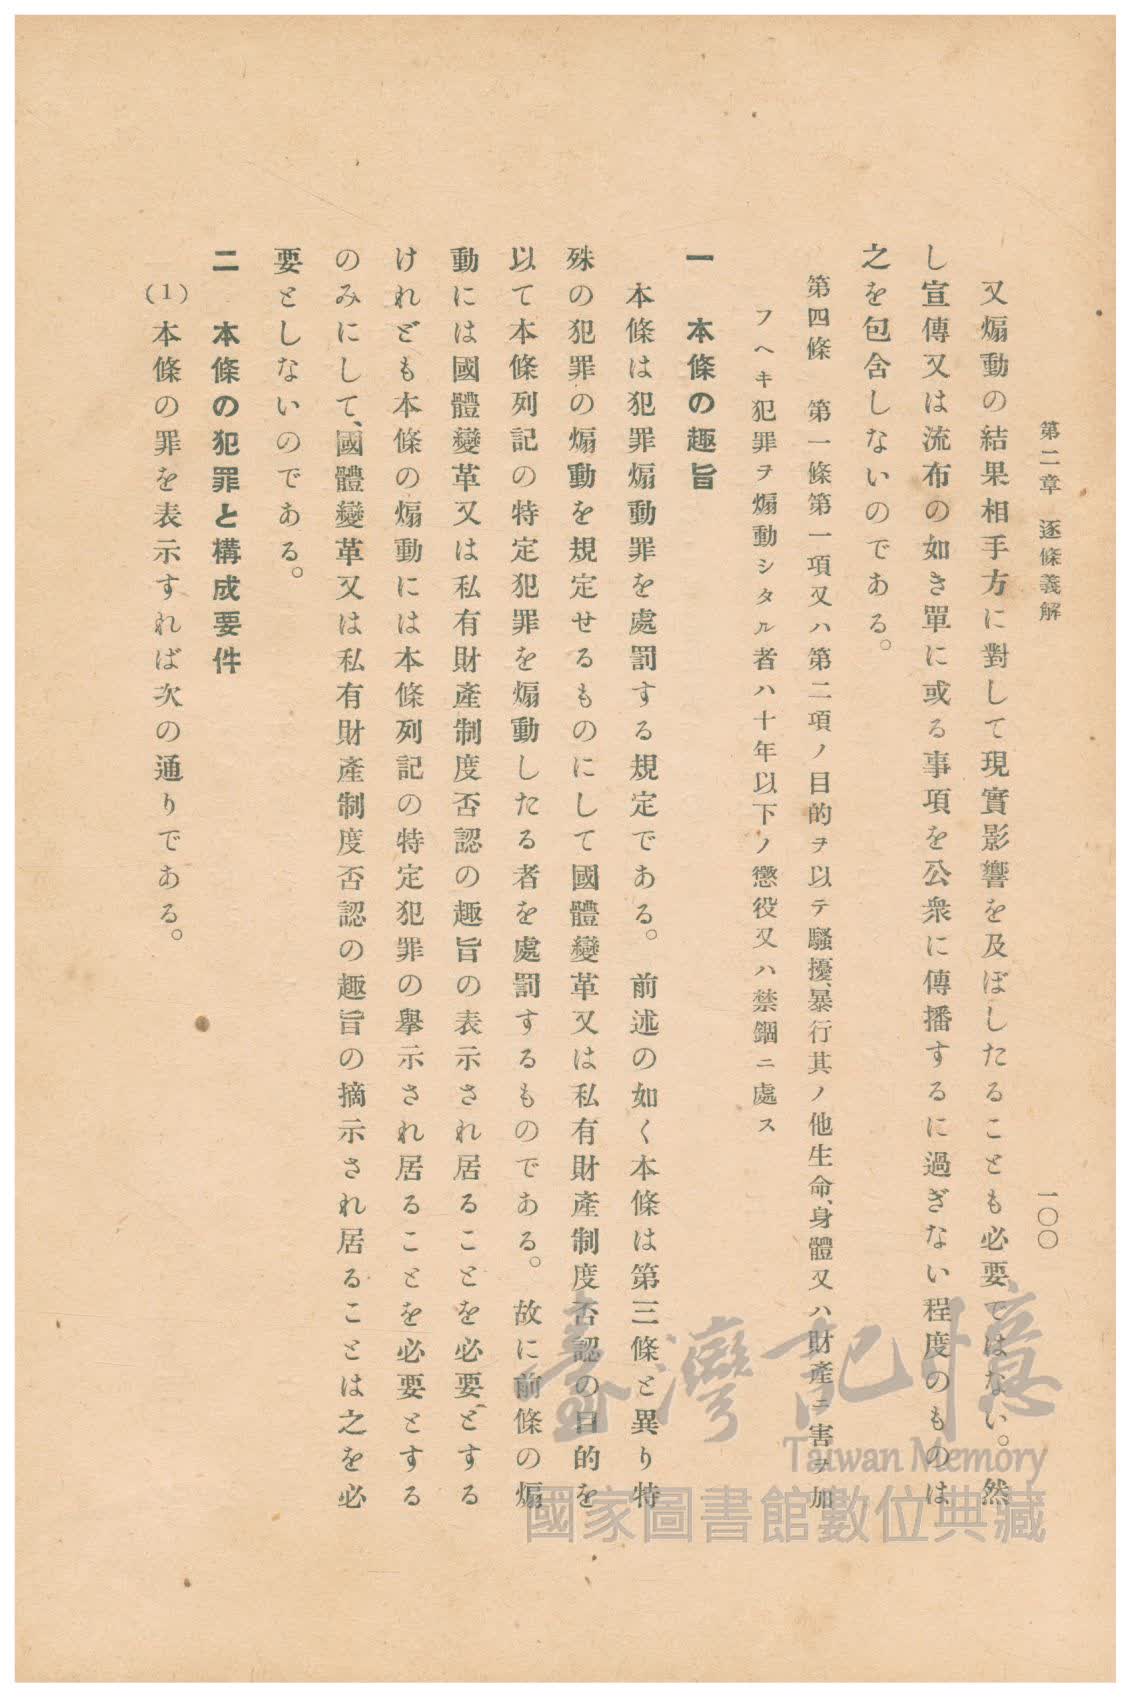 第二章　逐條義解
一〇〇
又煽動の結果相手方に對して現實影響を及ぼしたることも必要ではない。然
し宣傳又は流布の如き單に或る事項を公衆に傳播するに過ぎない程度のものは
之を包含しないのである。
第四條　第一條第一項又ハ第二項ノ目的ヲ以テ騷擾、暴行其ノ他生命、身體又ハ財產ニ害ヲ加
フヘキ犯罪ヲ煽動シタル者ハ十年以下ノ懲役又ハ禁錮ニ處ス
一　本條の趣旨
本條は犯罪煽動罪を處罰する規定である。前述の如く本條は第三條と異り特
殊の犯罪の煽動を規定せるものにして國體變革又は私有財產制度否認の目的を
以て本條列記の特定犯罪を煽動したる者を處罰するものである。故に前條の煽
動には國體變革又は私有財產制度否認の趣旨の表示され居ることを必要とする
けれども本條の煽動には本條列記の特定犯罪の擧示され居ることを必要とする
のみにして、國體變革又は私有財產制度否認の趣旨の摘示され居ることは之を必
要としないのである。
二　本條の犯罪と構成要件
(1)本條の罪を表示すれば次の通りである。
臺灣記憶
Taiwan Memory
國家圖書館數位典藏